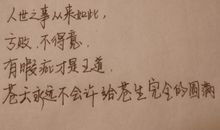 人世之事从来如此，
方败、不得意。
有暇疵才是王道。
苍天永远不会许给苍生完全的圆满